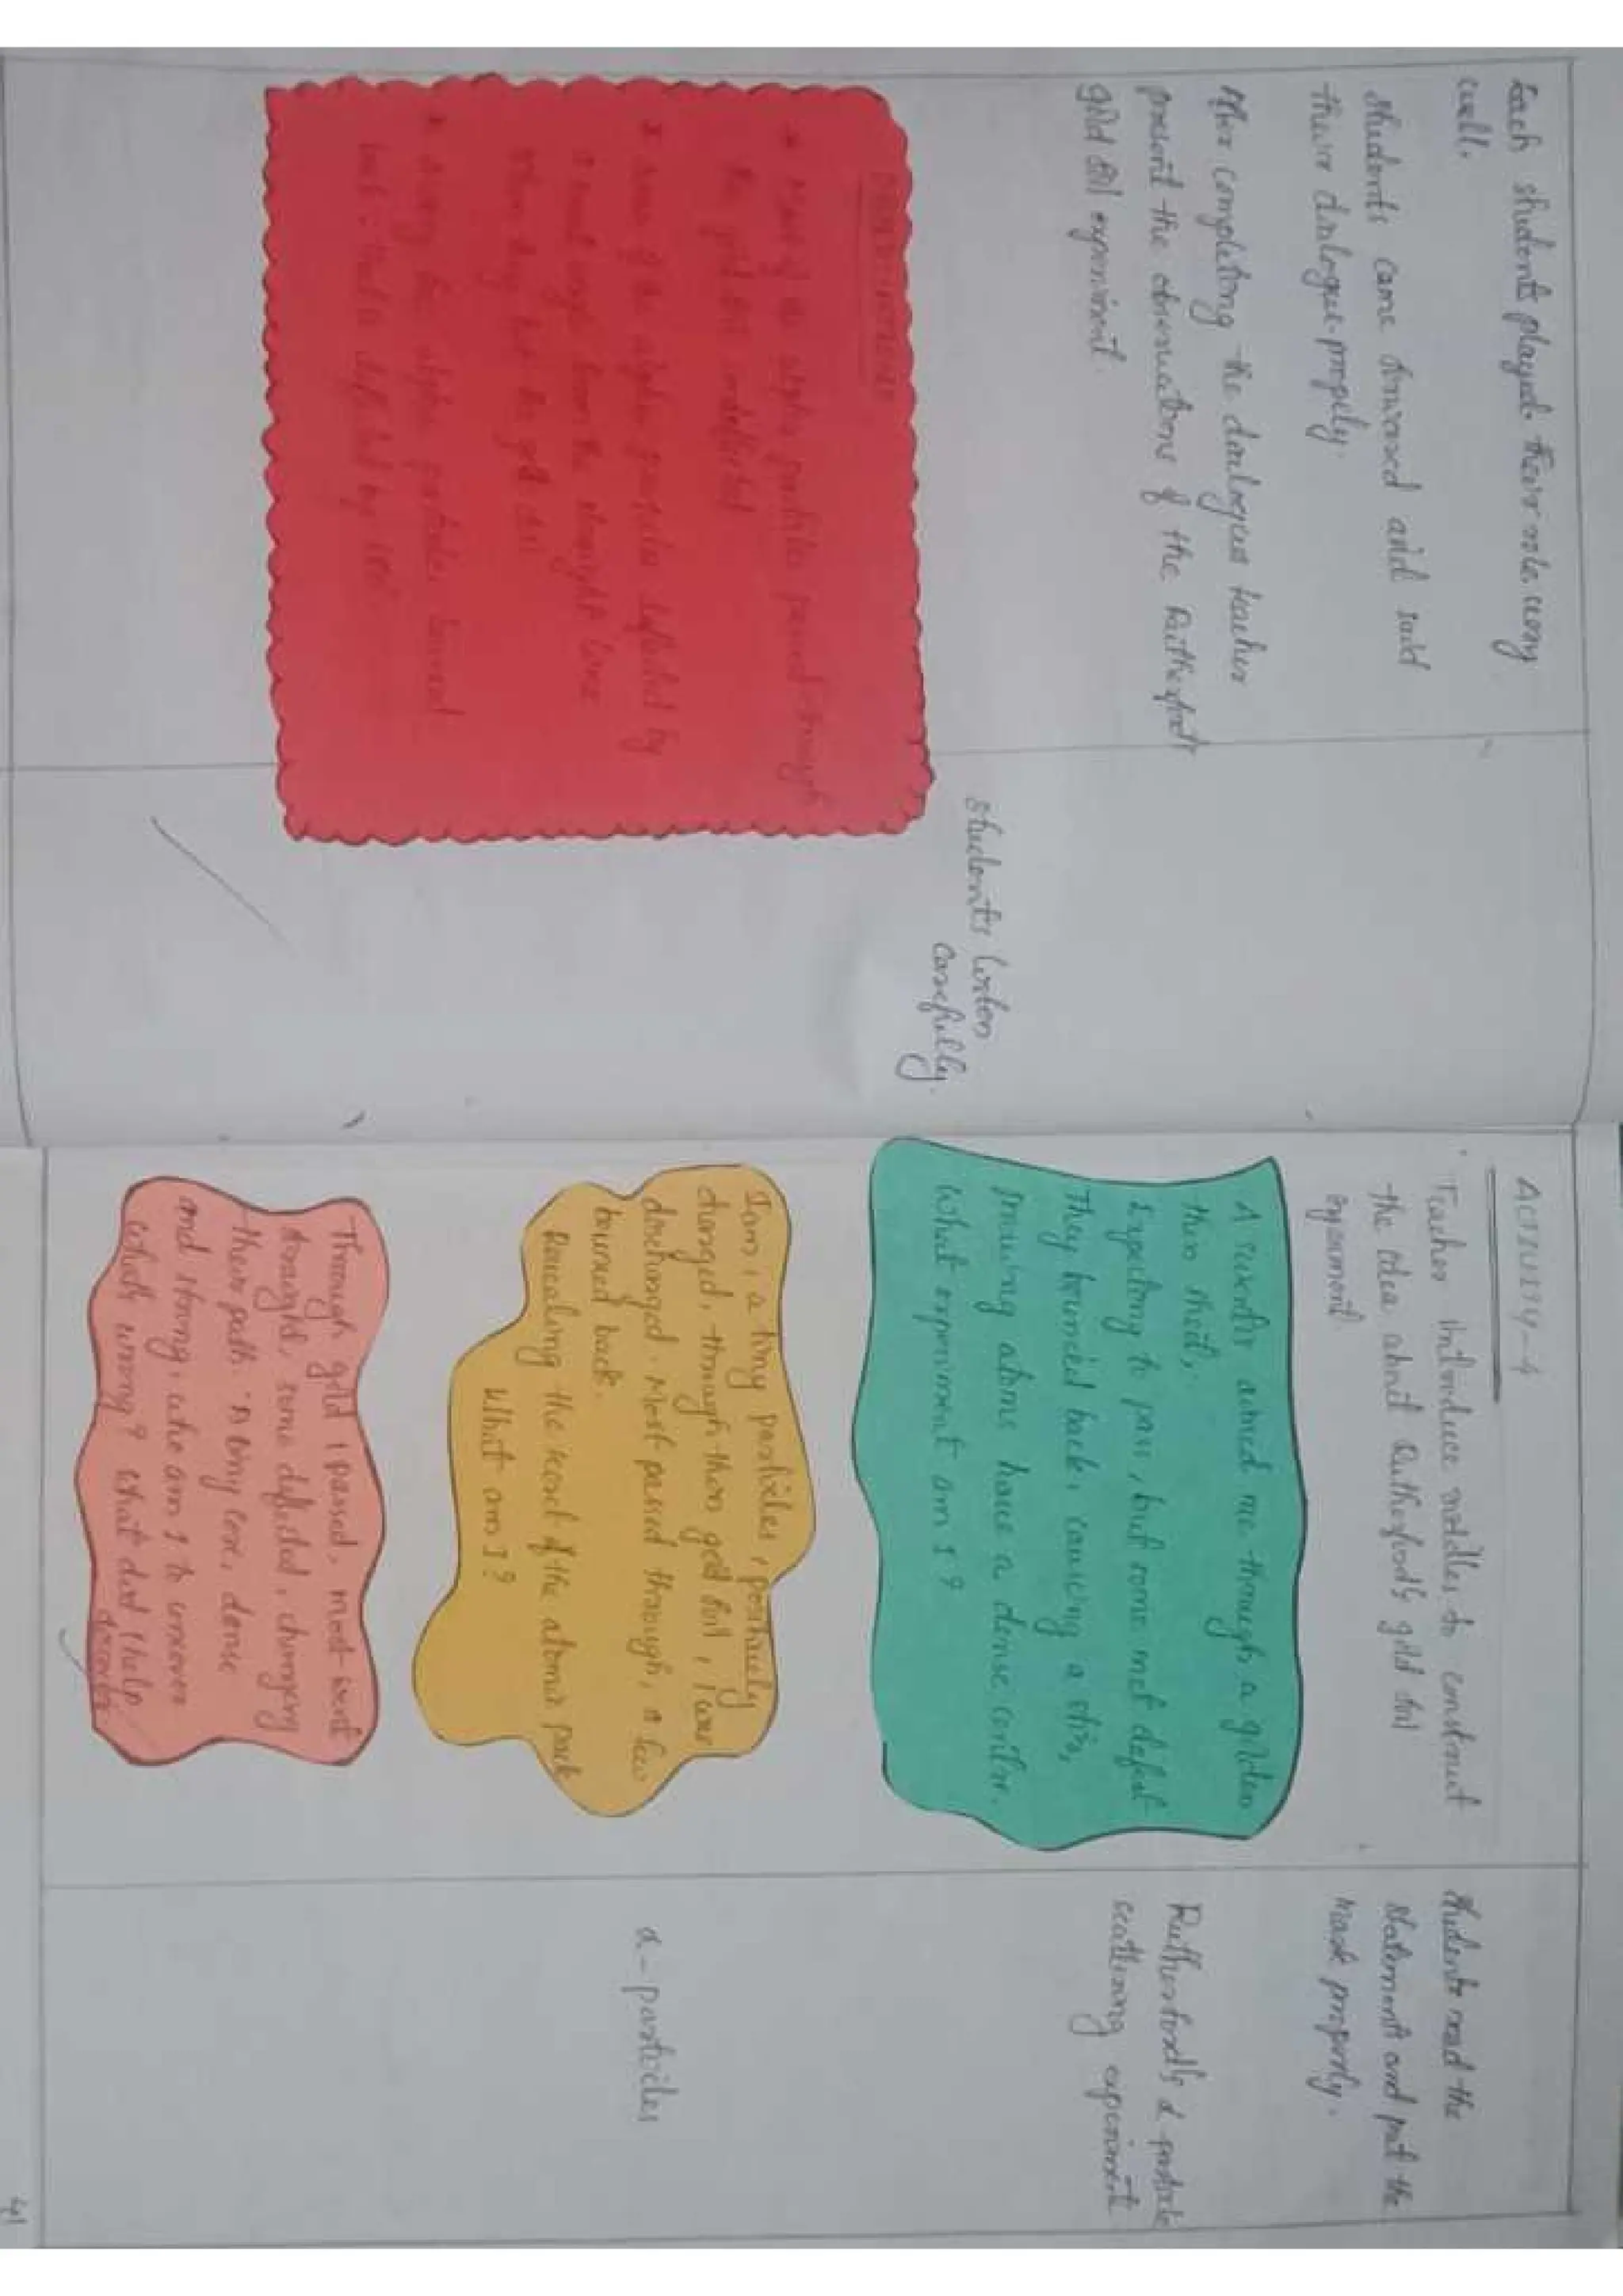 Each students played their role very
well.
Students came forward and said
their dialogue properly.
After completing the dialogues teacher
present the observations of the Rutherford's
gold foil experiment.
Students listen
carefully.
OBSERVATIONS
* Most of the alpha particles passed through
the gold foil undeflected
* Some of the alpha particles deflected by
a small angle from the straight line
when they hit the gold foil
* very few alpha particles bounced
back - that is deflected by 180°.
ACTIVITY-4
Teacher introduce riddles to construct
the idea about Rutherford's gold foil
experiment.
A scientist aimed me through a golden
thin sheet,
Expecting to pass, but some met defeat
They bounced back, causing a stir,
Proving atoms have a dense center.
What experiment am I?
I am, a tiny particles, positively
charged, through then gold foil, I was
discharged. Most passed through, a few
bounced back.
Revealing the secret of the atomic pack
What am I?
Through gold I passed, most went
straight, some deflected, changing
their path. A tiny core, dense
and strong, who am I to uncover
what's wrong? What did I help
discover
Students read the
statements and put the
mask properly.
Rutherford's α particle
scattering experiment
α-particles
41